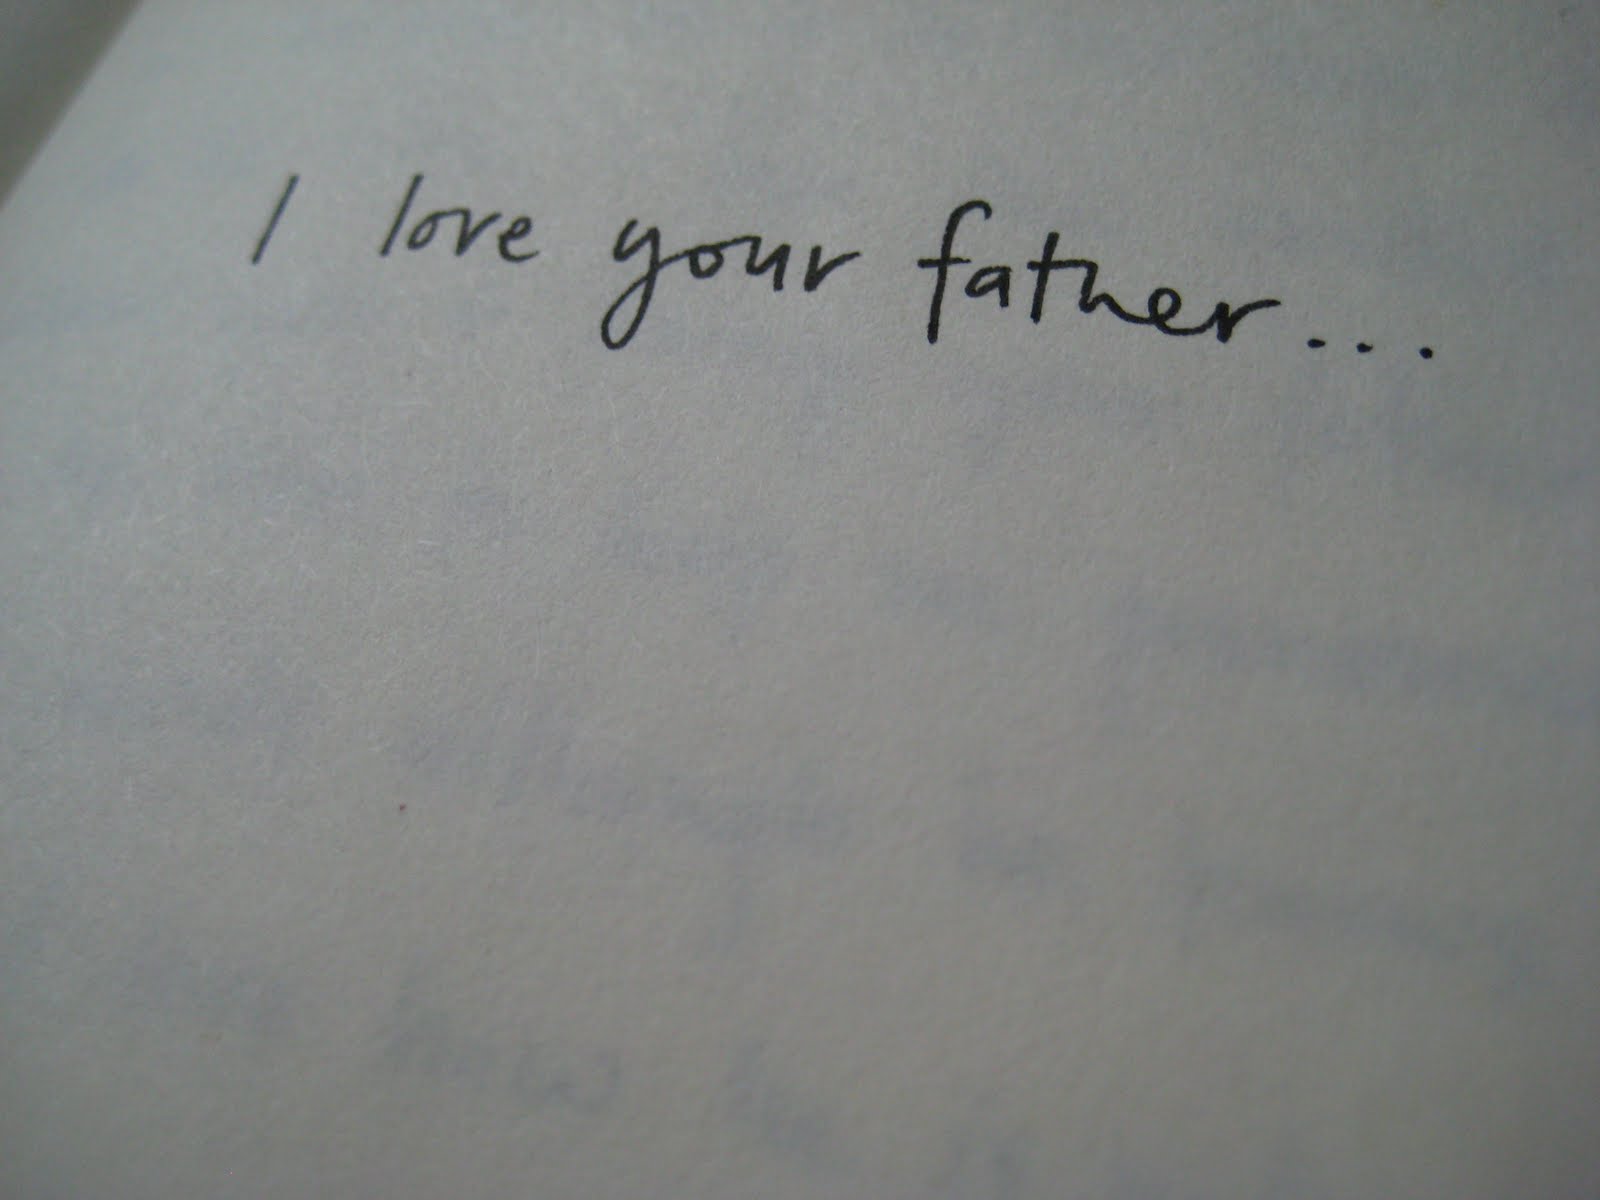 I love your father...